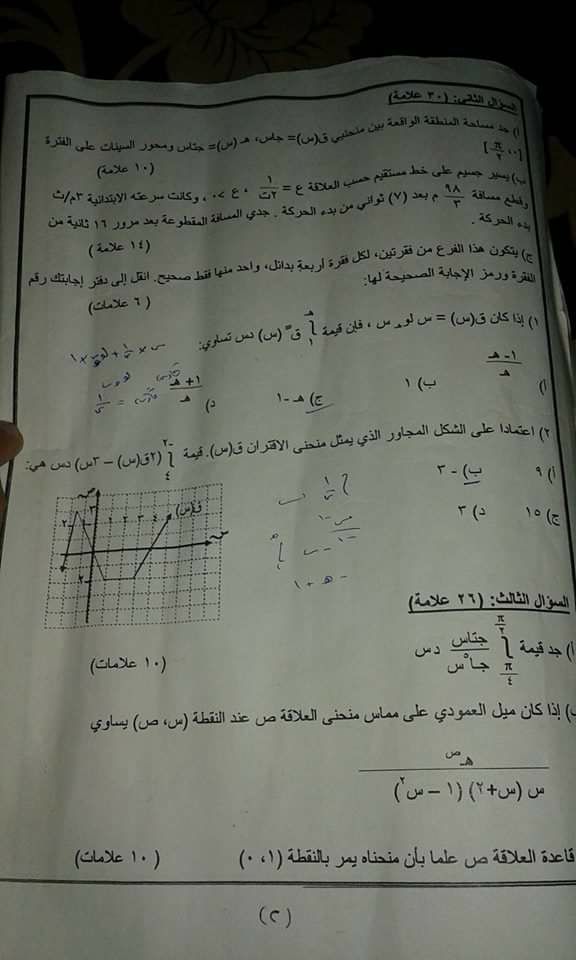 السؤال الثاني: (٣٠ علامة)
أ) جد مساحة المنطقة الواقعة بين منحنيي ق(س)= جاس، هـ (س)= جتاس ومحور السينات على الفترة
[٠، π/٢] (١٠ علامة)
ب) يسير جسيم على خط مستقيم حسب العلاقة ع = ١/٢ت ، ع >٠ ، وكانت سرعته الابتدائية ٣م/ث
وقطع مسافة ٩٨/٣ م بعد (٧) ثواني من بدء الحركة . جدي المسافة المقطوعة بعد مرور ١٦ ثانية من
بدء الحركة . (١٤ علامة )
ج) يتكون هذا الفرع من فقرتين، لكل فقرة أربعة بدائل، واحد منها فقط صحيح. انقل إلى دفتر إجابتك رقم
الفقرة ورمز الإجابة الصحيحة لها: (٦ علامات )
١) إذا كان ق(س) = س لوهـ س ، فإن قيمة ∫ هـ ١ ق ًً (س) دس تساوي:
أ) ١- هـ/هـ ب) ١ ج) هـ -١ د) ١+ هـ/هـ
٢) اعتمادا على الشكل المجاور الذي يمثل منحنى الاقتران ق(س). قيمة ∫ -٢ ٤ (٢ق(س) – ٣س) دس هي:
أ) ٩ ب) - ٣
ج) ١٥ د) ٣
ص
ق(س)
س
٢
٣
١ ٢ ٣ ٤
-٢
السؤال الثالث: (٢٦ علامة)
أ) جد قيمة ∫ π/٢ π/٤ جتاس/جا°س دس (١٠ علامات)
ب) إذا كان ميل العمودي على مماس منحنى العلاقة ص عند النقطة (س، ص) يساوي
هـ ص
س (س+٢) (١ – س٢)
قاعدة العلاقة ص علما بأن منحناه يمر بالنقطة (١، ٠) (١٠ علامات )
(٢)